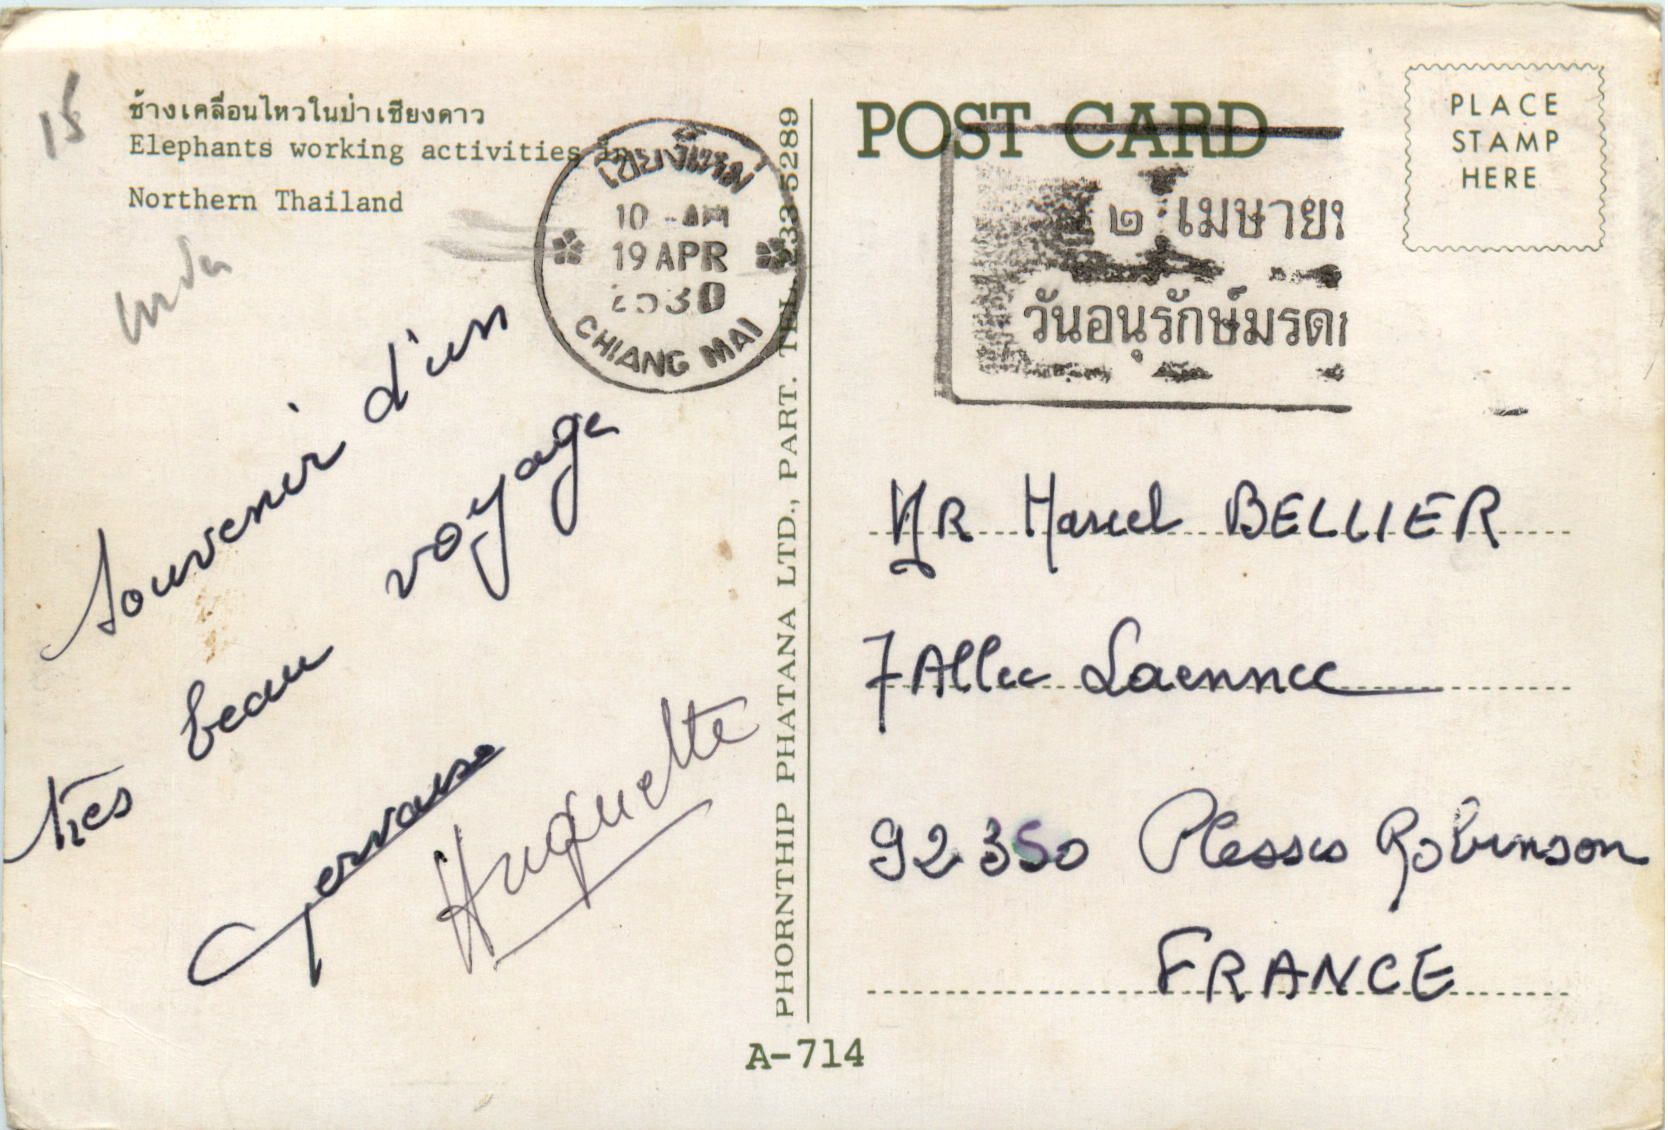 15
ช้างเคลื่อนไหวในป่าเชียงดาว
Elephants working activities in
Northern Thailand
เชียงใหม่
10 AM
19 APR
2530
CHIANG MAI
Souvenir d'un
très beau voyage
Gervaise
Huguette
PHORNTHIP PHATANA LTD., PART. TEL. 233-5289
A-714
POST CARD
PLACE
STAMP
HERE
๒ เมษายน
วันอนุรักษ์มรดก
MR Marcel BELLIER
7 Allee Laennec
92350 Plessis Robinson
FRANCE